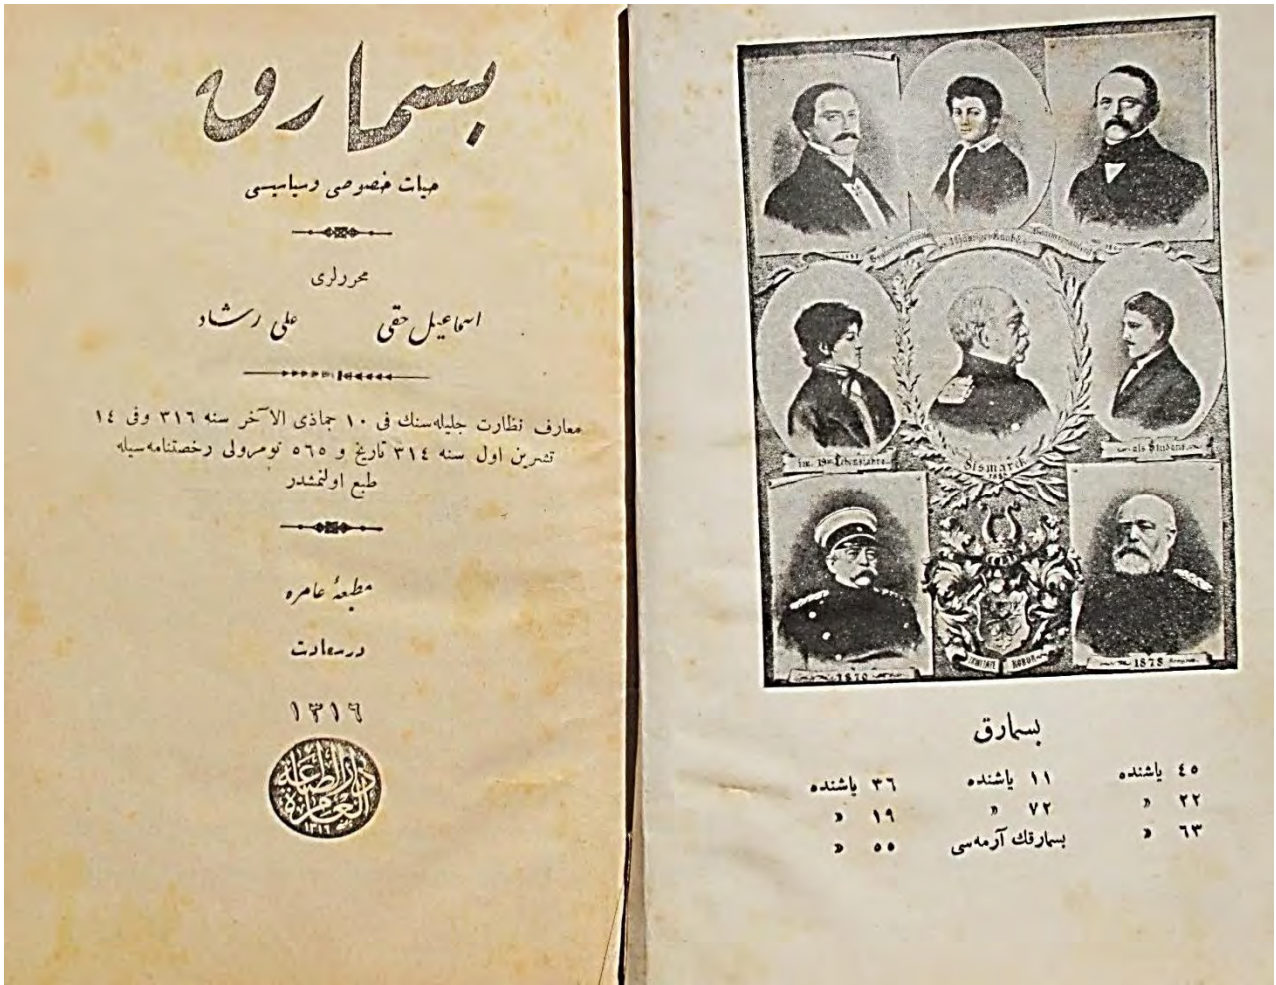 بسمارق
حیات خصوصی و سیاسیسی
محررلری
اسماعیل حقی علی رشاد
معارف نظارت جلیله‌سنك فی ١٠ جماذی الآخر سنه ٣١٦ وفی ١٤
تشرین اول سنه ٣١٤ تاریخ و ٥٦٥ نومرولی رخصتنامه‌سیله
طبع اولنمشدر
مطبعۀ عامره
درسعادت
١٣١٦
دار الطباعة
العامرة
١٣١٦
im 19ten Lebensjahre
als Student
Bismarck
1870
ROBUR
1878
بسمارق
٤٥ یاشنده ١١ یاشنده ٣٦ یاشنده
٢٢ » ٧٢ » ١٩ »
٦٣ » بسمارقك آرمه‌سی ٥٥ »